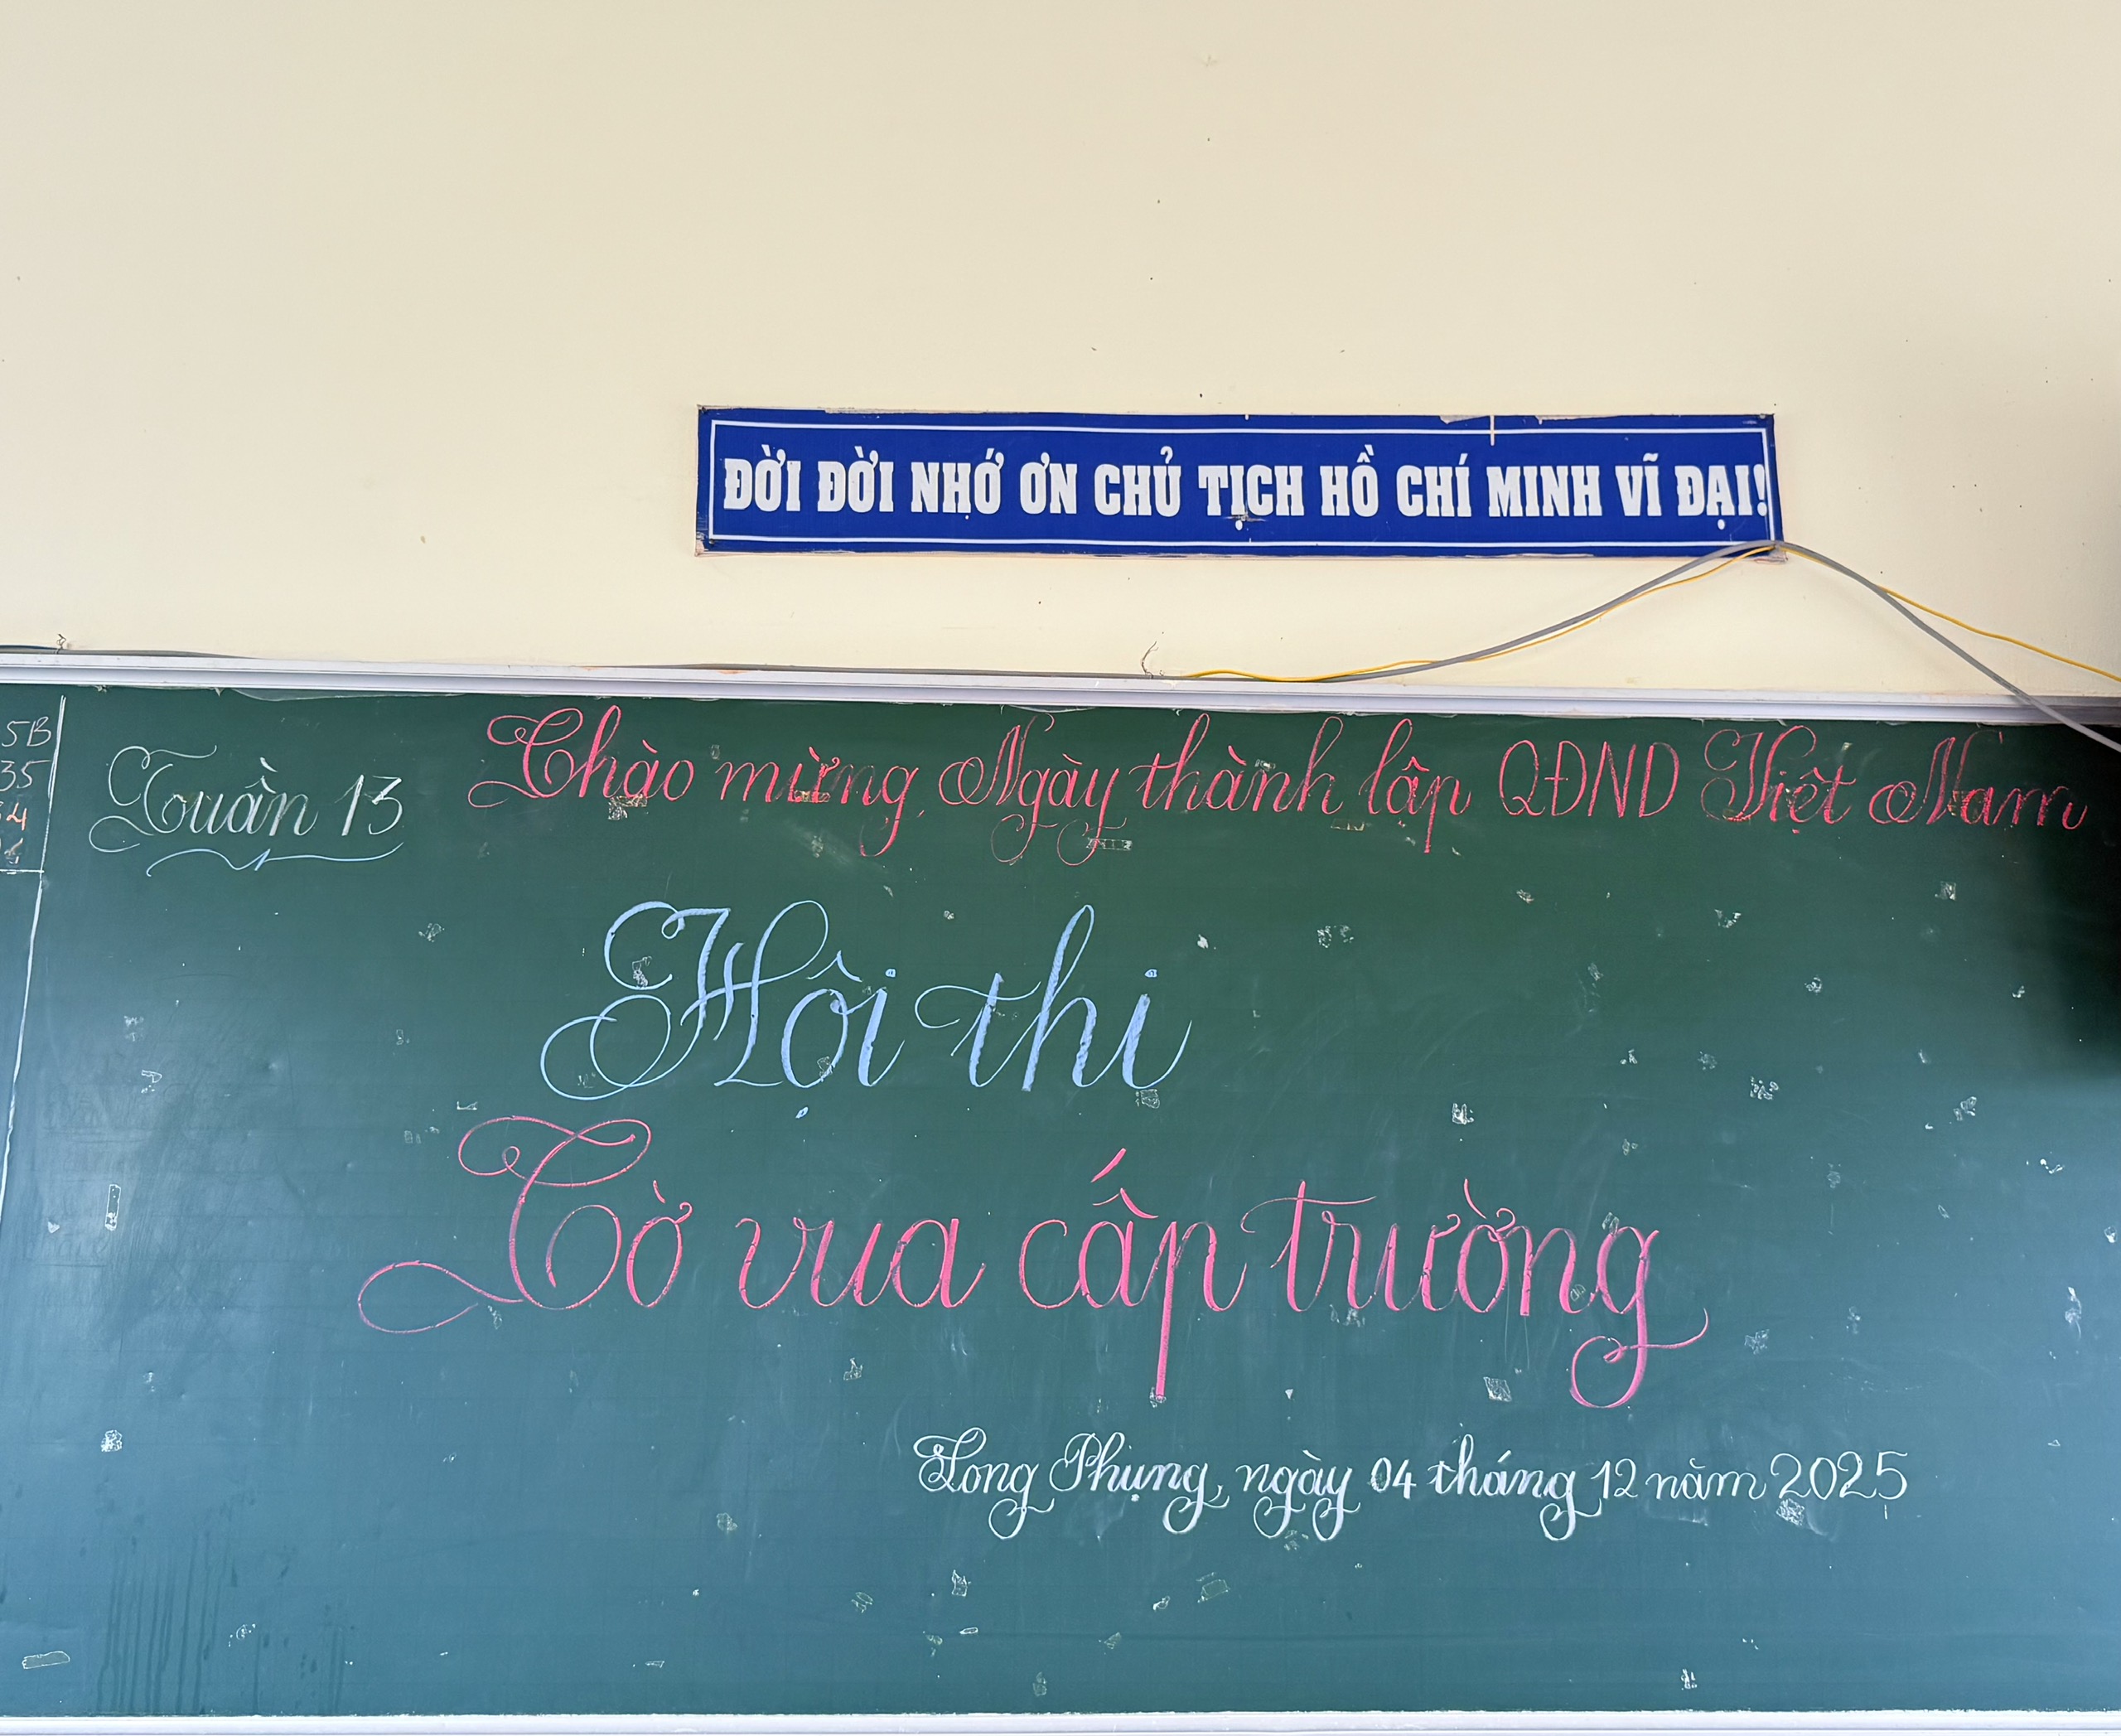 ĐỜI ĐỜI NHỚ ƠN CHỦ TỊCH HỒ CHÍ MINH VĨ ĐẠI!
5B
35
Tuần 13
Chào mừng Ngày thành lập QĐND Việt Nam
Hội thi
Cờ vua cấp trường
Long Phụng, ngày 04 tháng 12 năm 2025